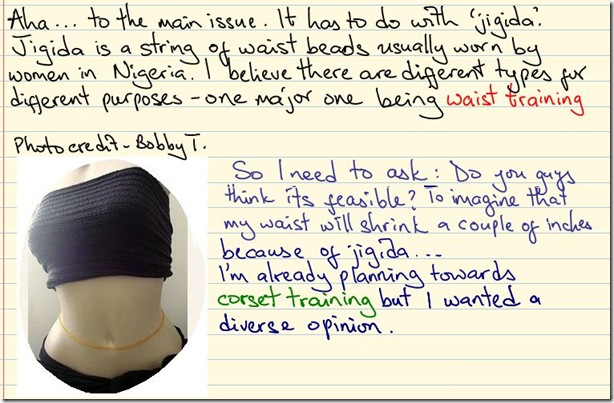 Aha... to the main issue. It has to do with 'jigida'.
Jigida is a string of waist beads usually worn by
women in Nigeria. I believe there are different types for
different purposes - one major one being waist training
Photo credit - Bobby T.
So I need to ask: Do you guys
think its feasible? To imagine that
my waist will shrink a couple of inches
because of jigida...
I'm already planning towards
corset training but I wanted a
diverse opinion.